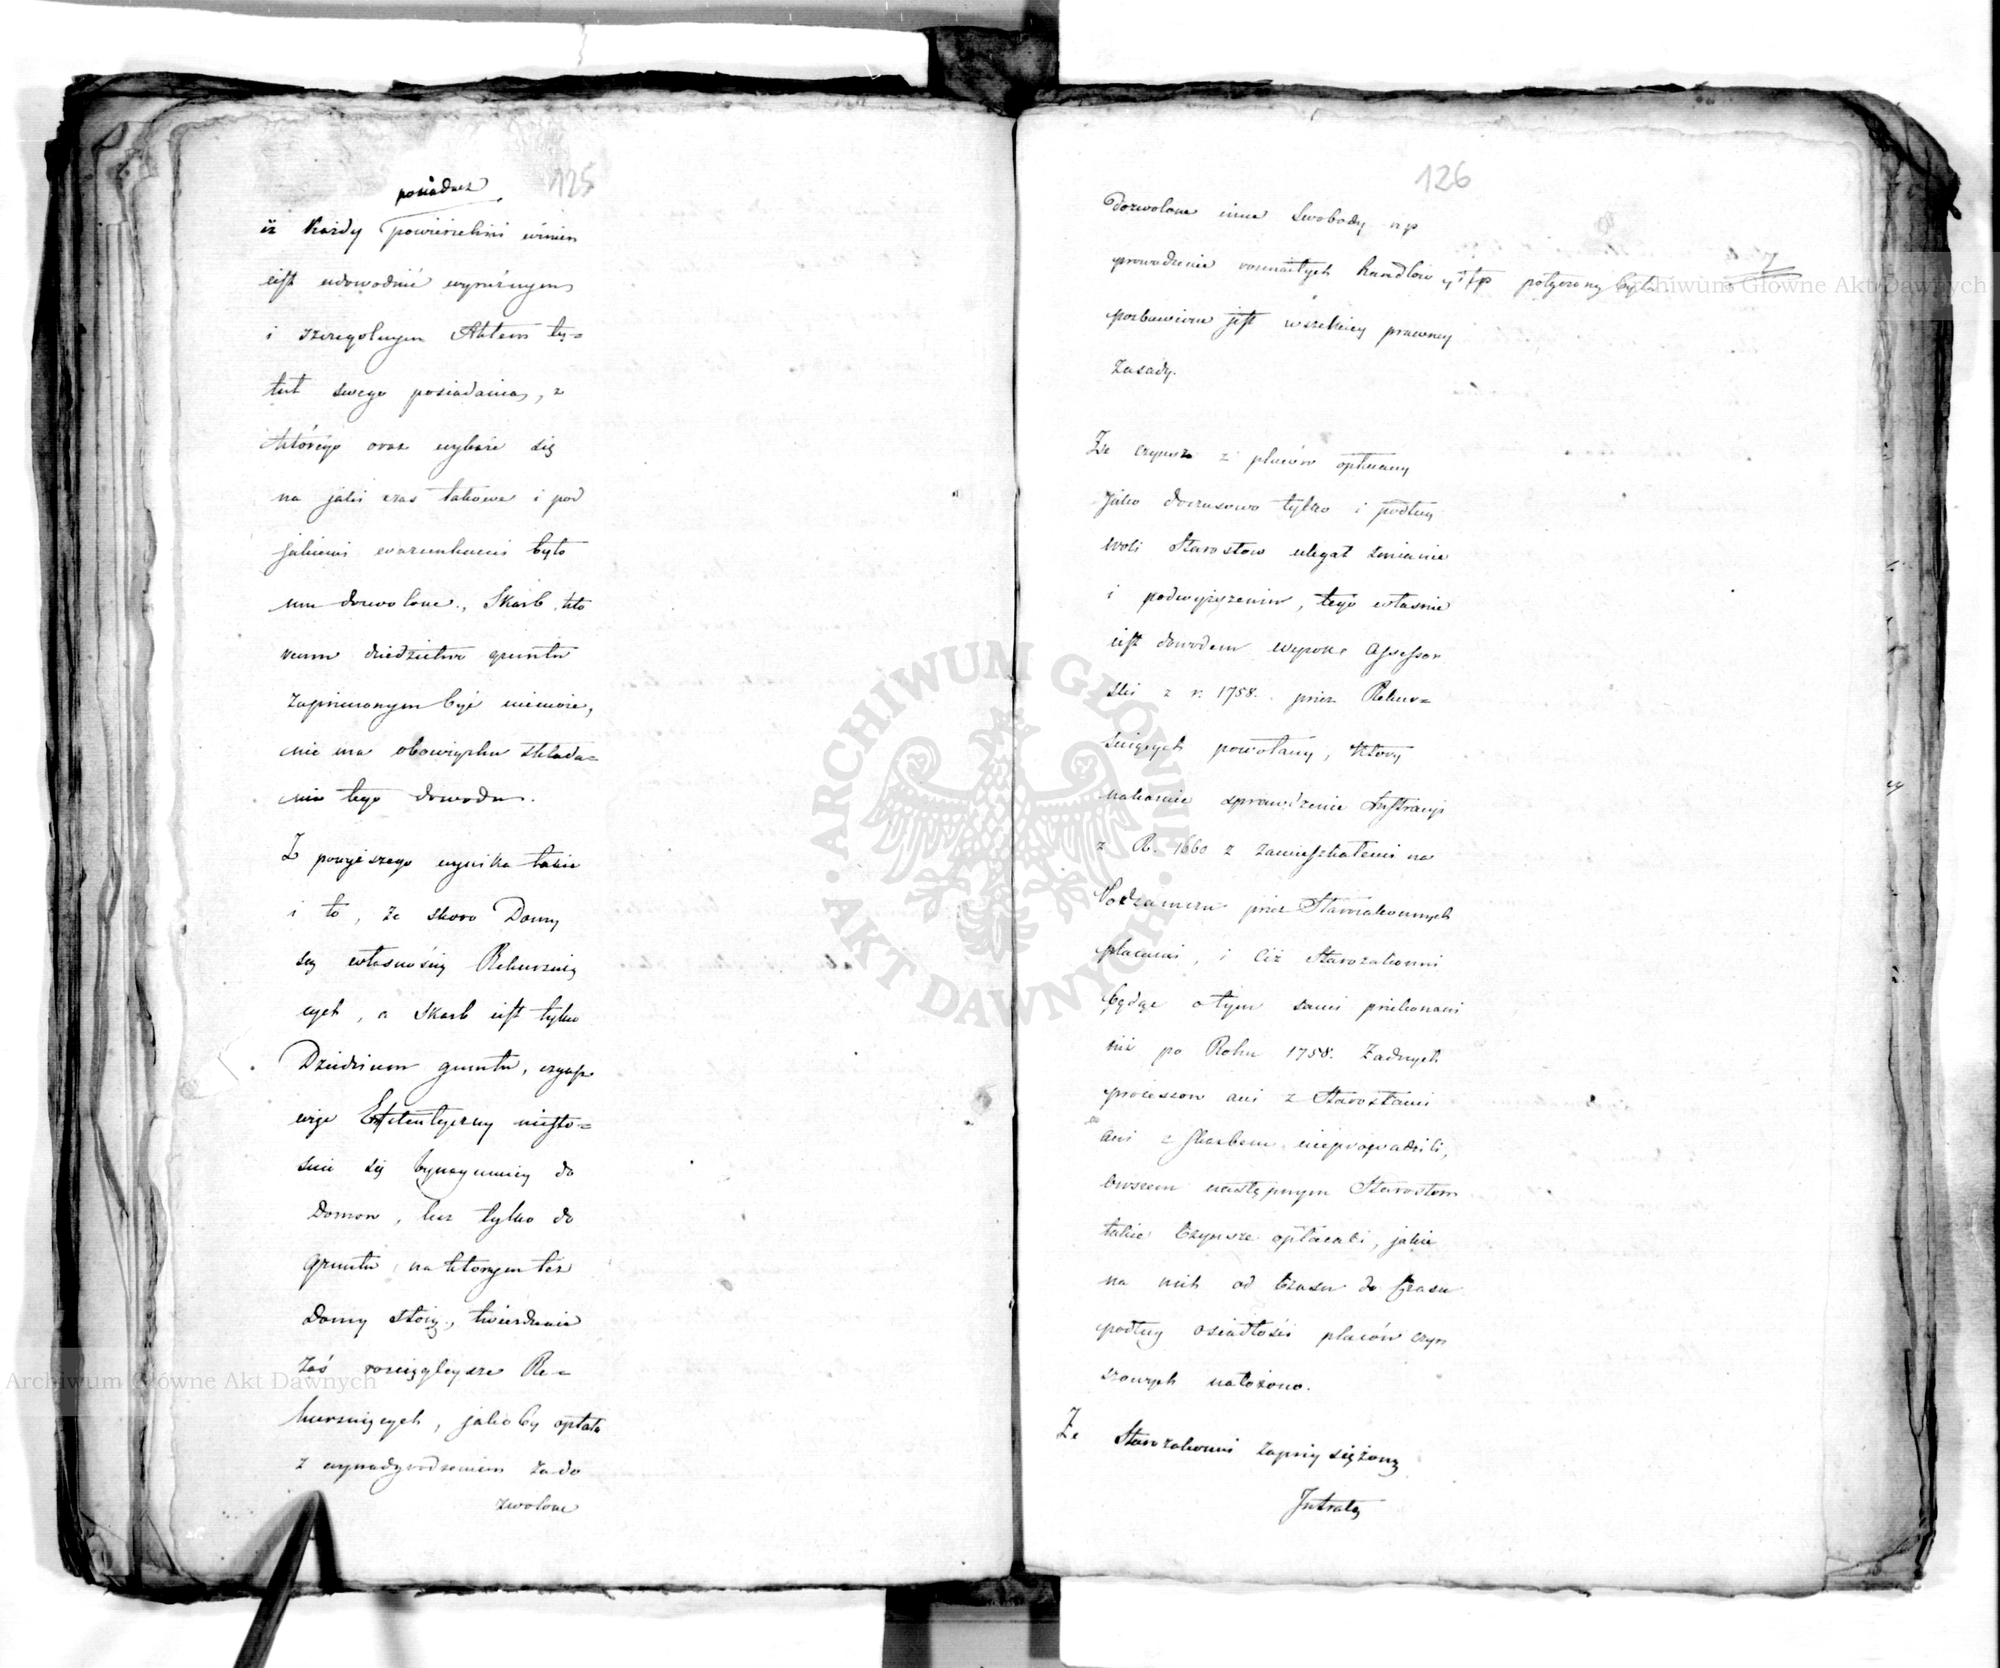 125
posiadacz
iż Każdy powierzchni winien
iest udowodnić wyraźnym
i szczegolnym Aktem ty=
tuł swego posiadania, z
którego oraz wykaże się
na jaki czas takowe i pod
jakiemi warunkami było
mu dozwolone, Skarb, kto
remu dziedzictwo gruntu
zaprzeczonym być niemoże,
nie ma obowiązku składa=
nia tego dowodu.
Z powyższego wynika także
i to, że skoro Domy
są własnością Rekurniją
cych, a Skarb iest tylko
Dziedzicem gruntu, czynsz
więc Emfiteutyczny niesto=
suie się bynaymniey do
Domow, lecz tylko do
gruntu, na ktorym też
Domy stoią, twierdzenie
zaś rosciągleysze Re=
kurniących, jakoby opłata
z wynadgrodzeniem za do
zwolone
126
Dozwolone inne Swobody np
prowadzenie rozmaitych handlów itp połączoną była
pozbawione jest wszelkiey prawney
zasady.
Że czynsz z placów opłacany
jako doczesowo tylko i podług
woli Starostow ulegał zmianie
i podwyższeniu, tego właśnie
iest dowodem wyrok Assessor
ski z r. 1758. przez Rekur=
uiących powołany, który
nakazuie sprawdzenie Lustracyi
z R. 1660 z zamieszkałemi na
Podzamczu przez Starozakonnych
placami, i Ciż Starozakonni
będąc o tym sami przekonani
iuż po Roku 1758. Żadnych
processow ani z Starostami
ani z skarbem nieprowadzili,
owszem następnym Starostom
takie Czynsze opłacali, jakie
na nich od Czasu do Czasu
podług osiadłości placów czyn
szowych nałożono.
Że Starozakonni zaprzysiężoną
Intratę
ARCHIWUM GŁÓWNE AKT DAWNYCH
Archiwum Główne Akt Dawnych
Archiwum Główne Akt Dawnych